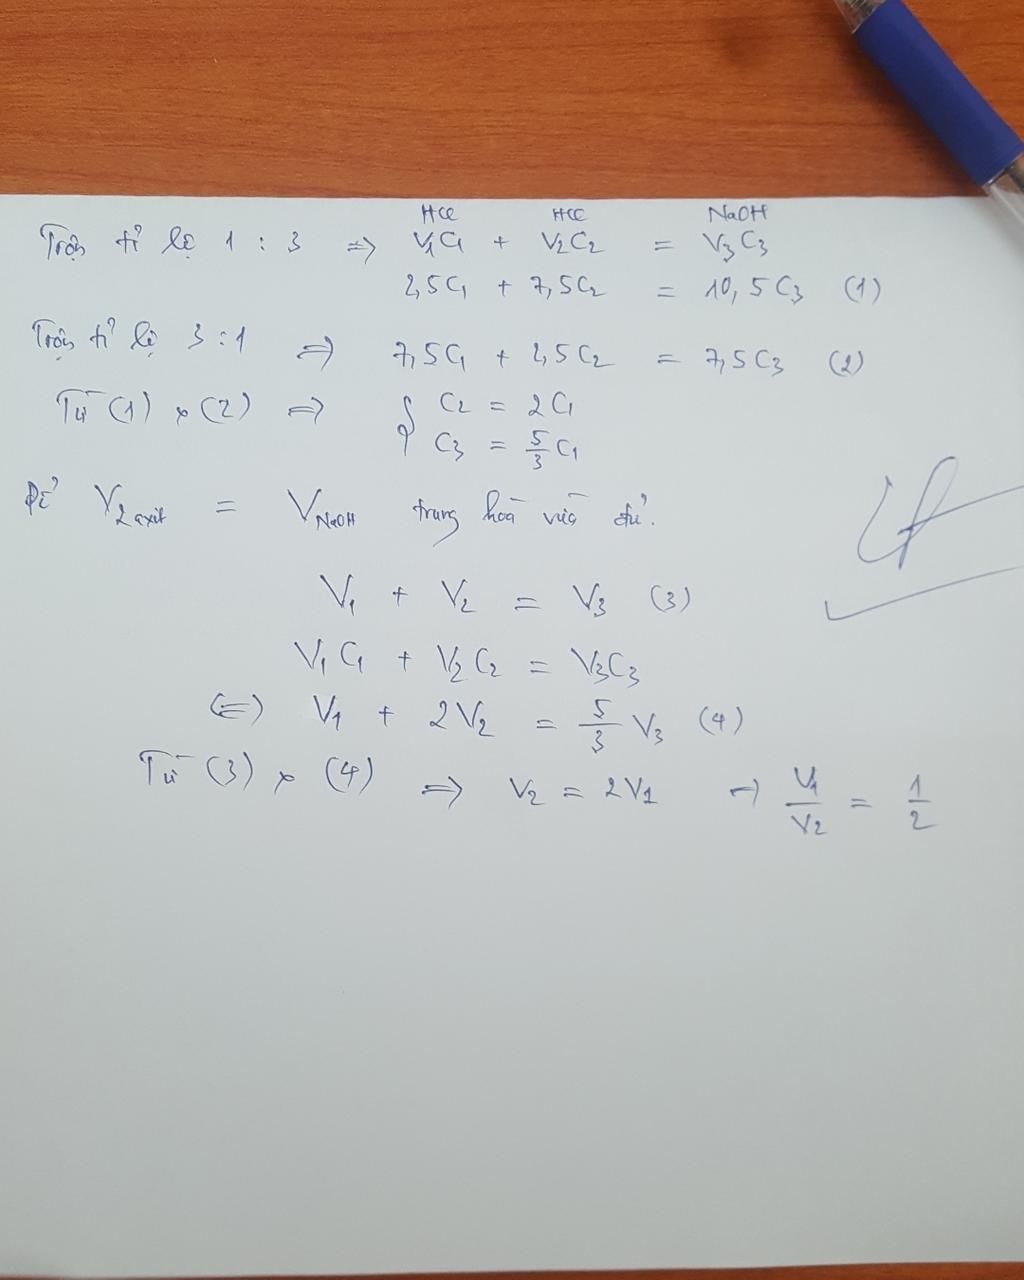 HCl HCl NaOH
Trộn tỉ lệ 1 : 3 => V1C1 + V2C2 = V3C3
2,5C1 + 7,5C2 = 10,5C3 (1)
Trộn tỉ lệ 3:1 => 7,5C1 + 2,5C2 = 7,5C3 (2)
Từ (1) & (2) => { C2 = 2C1
C3 = 5/3 C1
Để V2axit = VNaOH trung hoà vừa đủ.
V1 + V2 = V3 (3)
V1C1 + V2C2 = V3C3
<=> V1 + 2V2 = 5/3 V3 (4)
Từ (3) & (4) => V2 = 2V1 => V1/V2 = 1/2